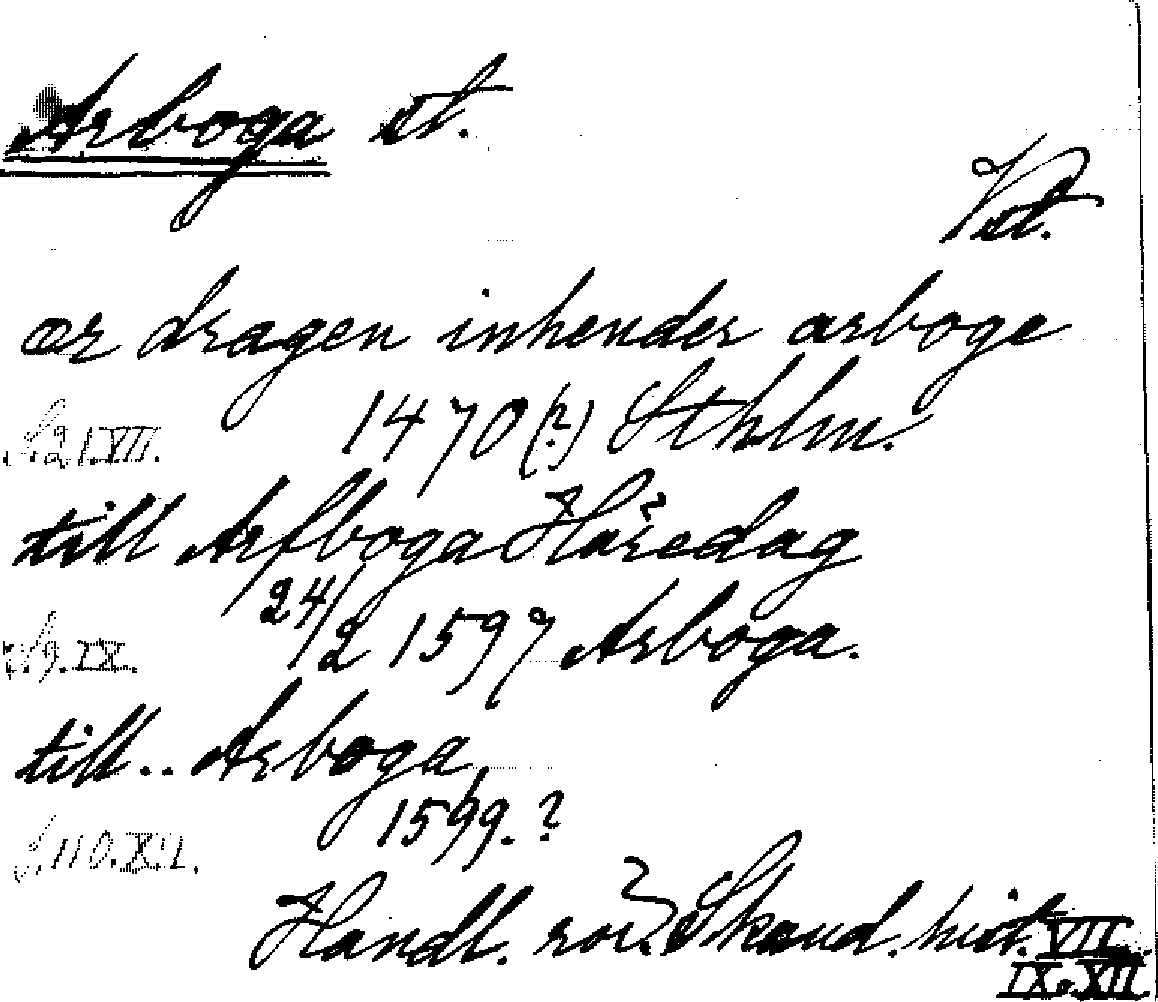 Arboga st.
Vstl.
ær dragen inhender arboge
S. 21. VII. 1470(?) Sthlm.
till Arfboga Håredag
S. 9. IX. 24/2 1597 Arboga.
till.. Arboga
S. 110. XII. 1599. ?
Handl. rör. Skand. hist. VII
IX. XII.